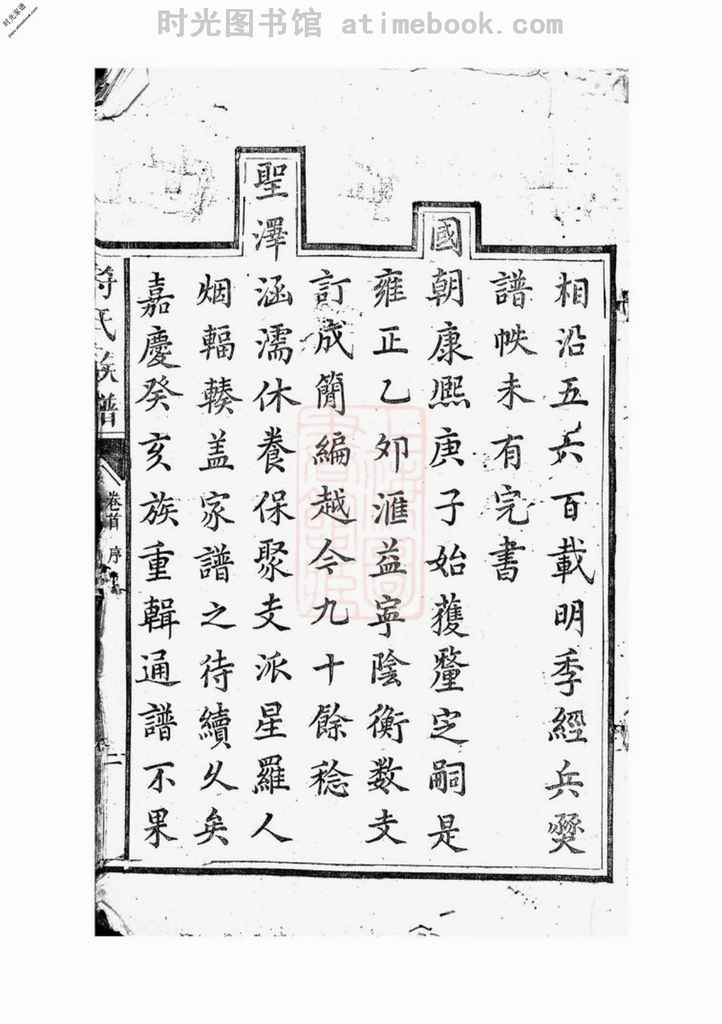 时光图书馆 atimebook.com
时光家谱
www.atimebook.com
相沿五六百載明季經兵燹
譜帙未有完書
國朝康熙庚子始獲釐定嗣是
雍正乙夘滙益寧陰衡數支
訂成簡編越今九十餘稔
聖澤涵濡休養保聚支派星羅人
烟輻輳盖家譜之待續久矣
嘉慶癸亥族重輯通譜不果
氏族譜
卷首 序
二